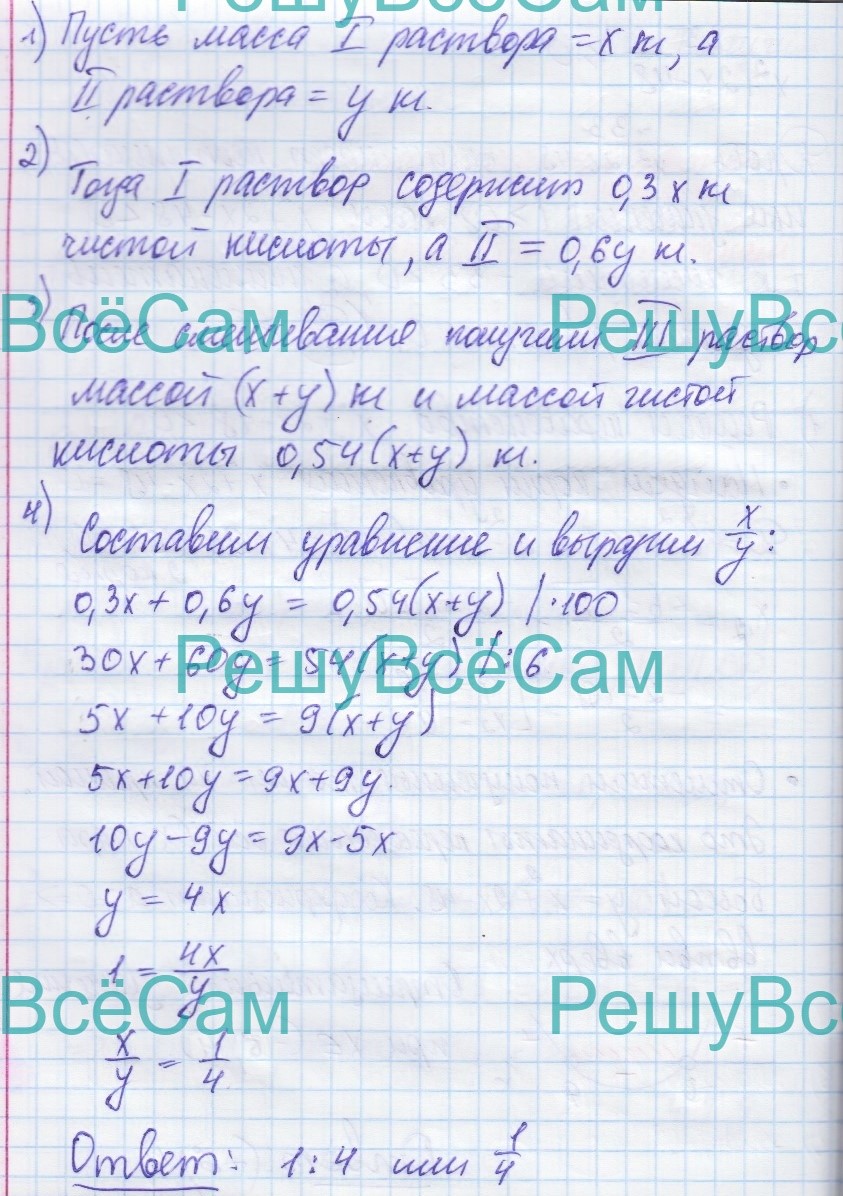 РешуВсёСам
1) Пусть масса I раствора = x кг, а
II раствора = y кг.
2)
Тогда I раствор содержит 0,3x кг
чистой кислоты, а II = 0,6y кг.
ВсёСам РешуВсё
3) После смешивания получили III раствор
массой (x+y) кг и массой чистой
кислоты 0,54(x+y) кг.
4) Составим уравнение и выразим x/y:
0,3x + 0,6y = 0,54(x+y) |·100
30x + 60y = 54(x+y) |:6
РешуВсёСам
5x + 10y = 9(x+y)
5x+10y = 9x+9y.
10y - 9y = 9x - 5x
y = 4x
1 = 4x/y
ВсёСам РешуВсё
x/y = 1/4.
Ответ: 1:4 или 1/4